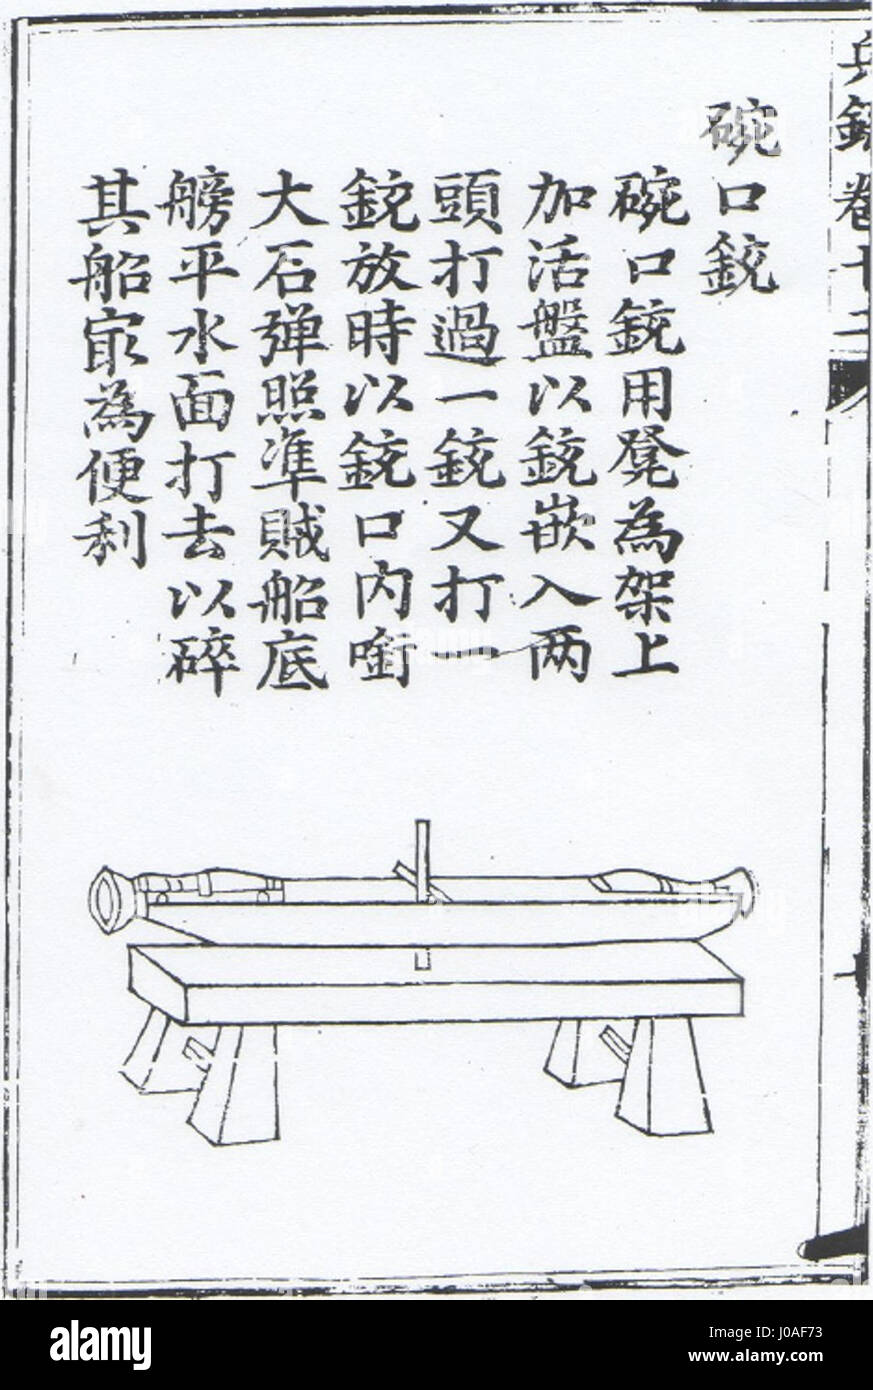 兵錄卷十二
碗口銃
碗口銃用凳為架上
加活盤以銃嵌入两
頭打過一銃又打一
銃放時以銃口内啣
大石弹照準賊船底
艕平水面打去以碎
其船㝡為便利
alamy
Image ID: J0AF73
www.alamy.com